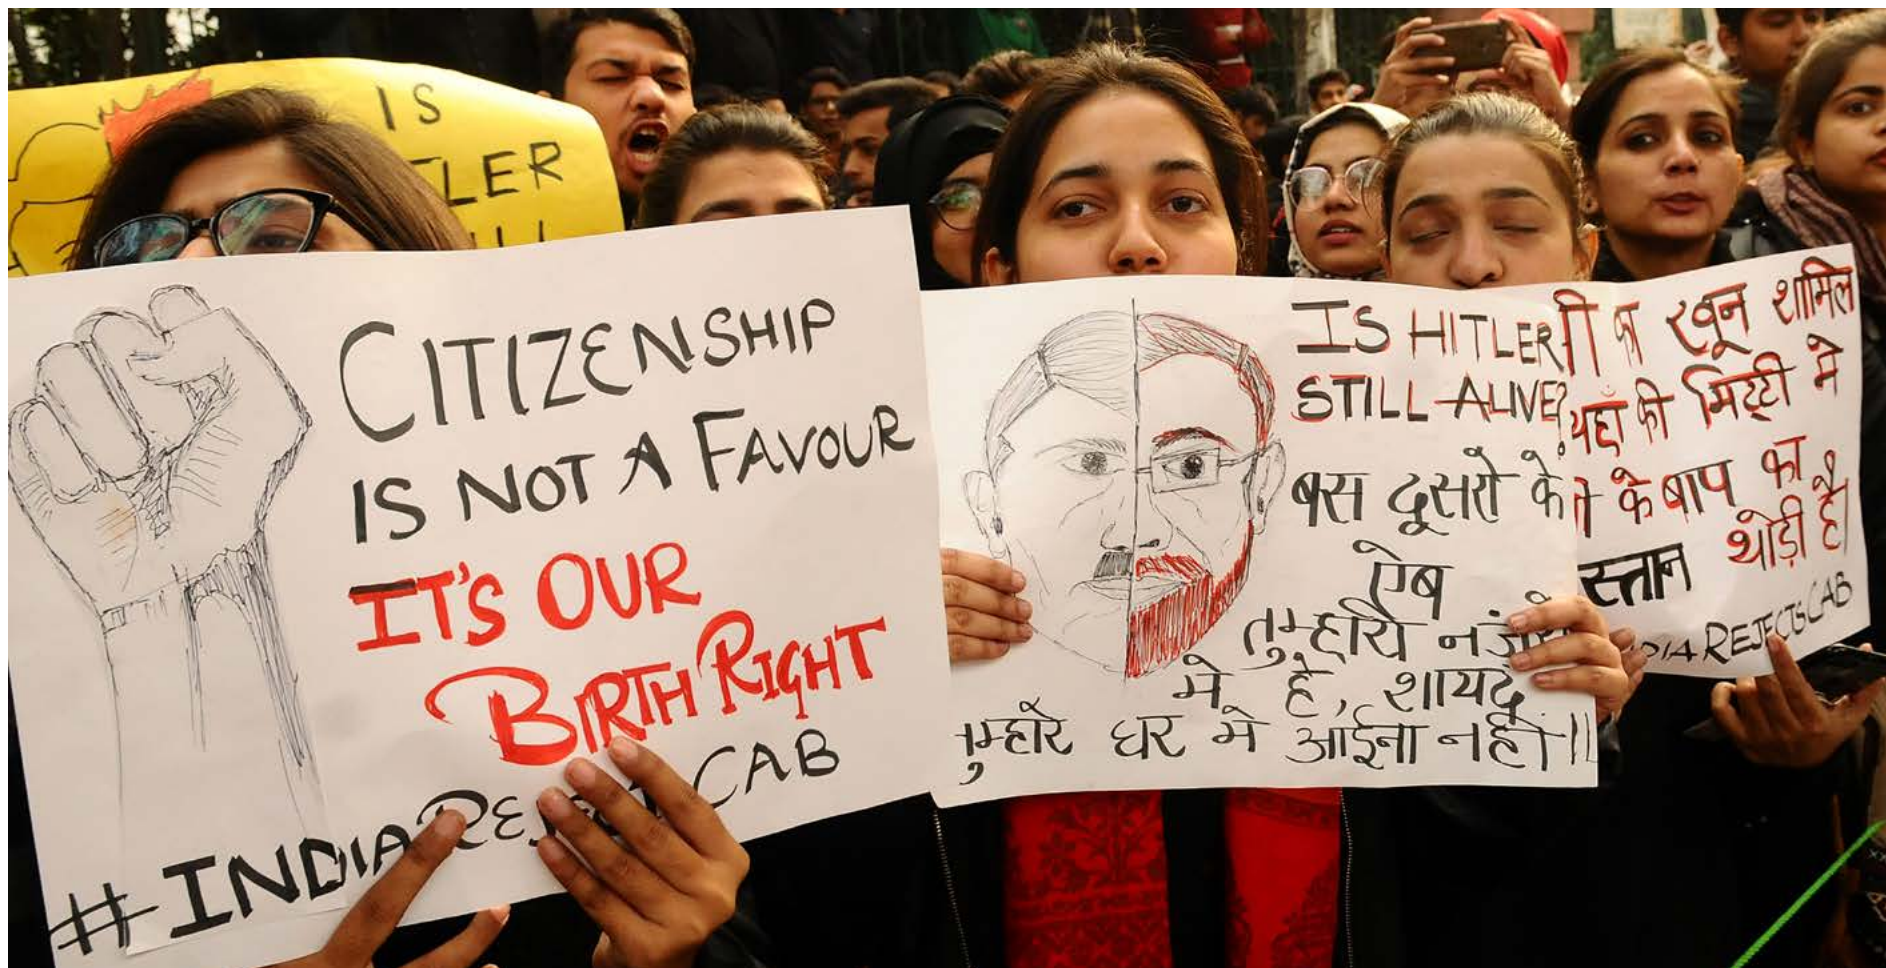 IS
TLER
CITIZENSHIP
IS NOT A FAVOUR
IT'S OUR
BIRTH RIGHT
#INDIA REJECT CAB
IS HITLER
STILL ALIVE?
बस दूसरो के
ऐब
तुम्हारी
मे है, शायद
तुम्हारे घर मे आईना नही।।
का खून शामिल
यहाँ की मिट्टी मे
के बाप का
स्तान थोड़ी है।
REJECTS CAB